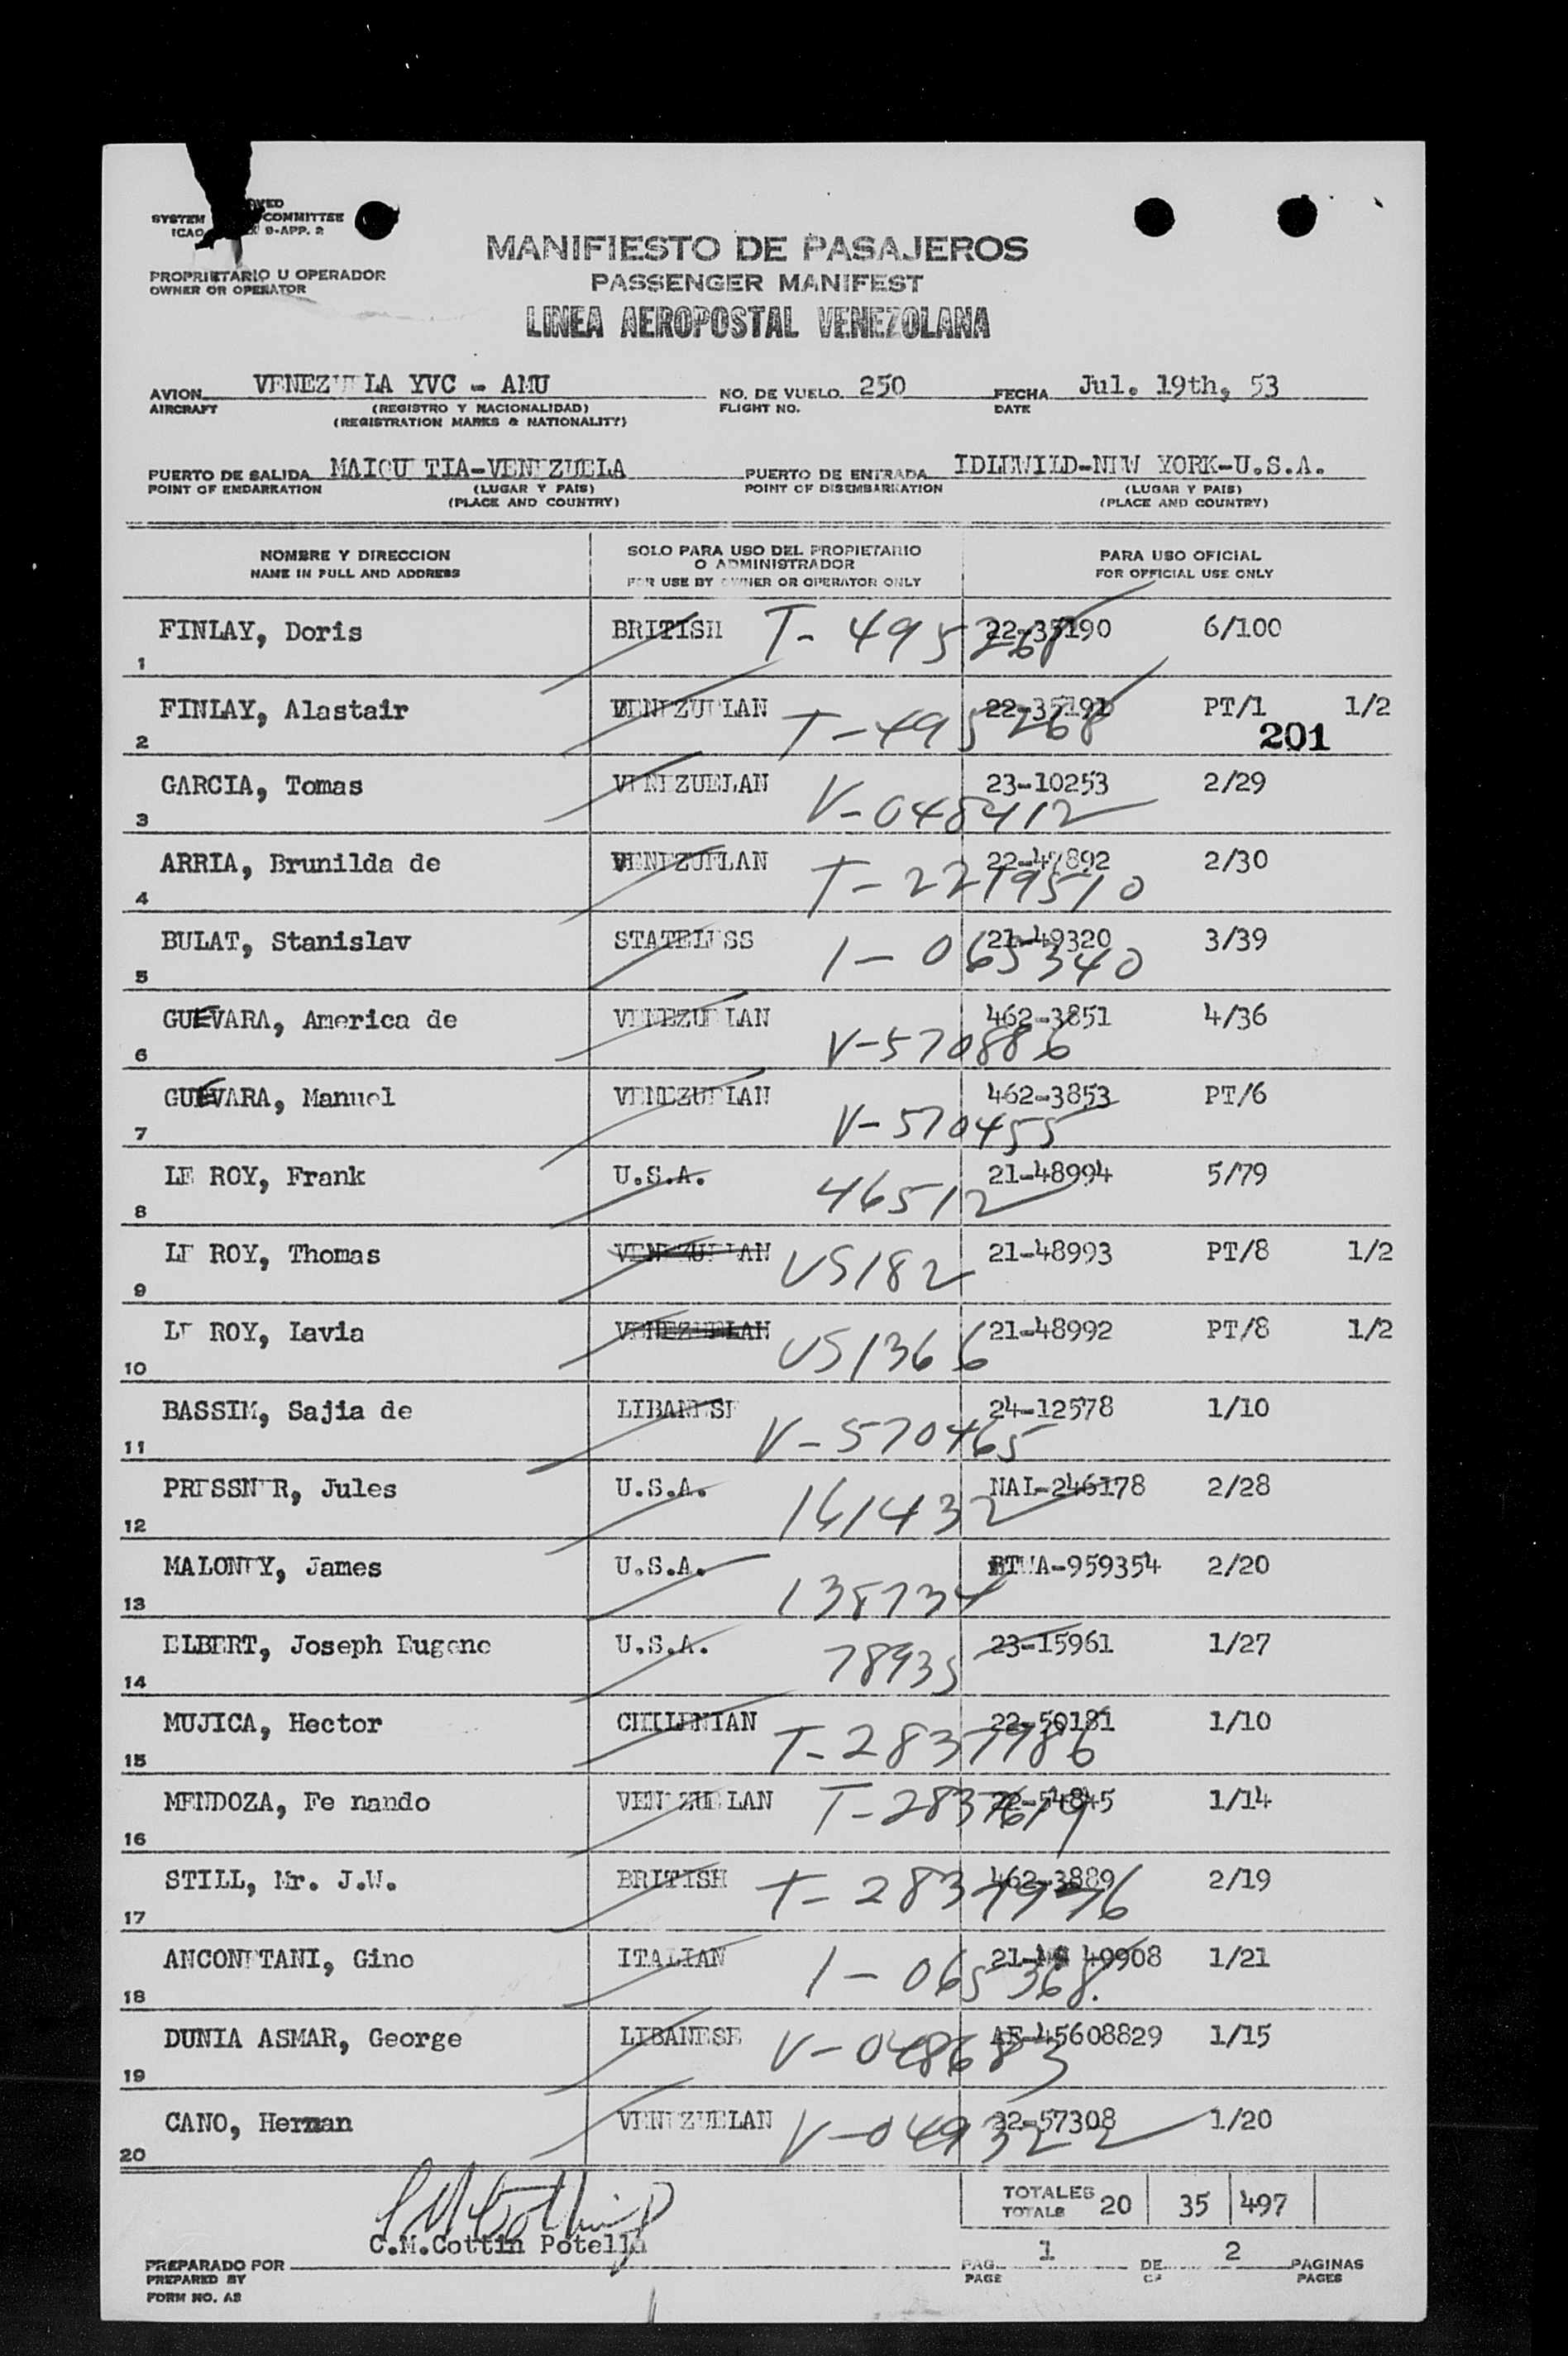 SYSTEM COMMITTEE
ICAO 9-APP. 2
PROPRIETARIO U OPERADOR
OWNER OR OPERATOR
MANIFIESTO DE PASAJEROS
PASSENGER MANIFEST
LINEA AEROPOSTAL VENEZOLANA
AVION VENEZUELA YVC - AMU NO. DE VUELO 250 FECHA Jul. 19th, 53
AIRCRAFT (REGISTRO Y NACIONALIDAD) FLIGHT NO. DATE
(REGISTRATION MARKS & NATIONALITY)
PUERTO DE SALIDA MAIQUETIA-VENEZUELA PUERTO DE ENTRADA IDLEWILD-NEW YORK-U.S.A.
POINT OF EMBARKATION (LUGAR Y PAIS) POINT OF DISEMBARKATION (LUGAR Y PAIS)
(PLACE AND COUNTRY) (PLACE AND COUNTRY)
NOMBRE Y DIRECCION SOLO PARA USO DEL PROPIETARIO PARA USO OFICIAL
O ADMINISTRADOR
NAME IN FULL AND ADDRESS FOR USE BY OWNER OR OPERATOR ONLY FOR OFFICIAL USE ONLY
FINLAY, Doris BRITISH T-495268 22-35190 6/100
1
FINLAY, Alastair VENEZUELAN T-495268 22-35191 PT/1 1/2
2 201
GARCIA, Tomas VENEZUELAN 23-10253 2/29
3 V-048412
ARRIA, Brunilda de VENEZUELAN T-2219510 22-47892 2/30
4
BULAT, Stanislav STATELESS 21-49320 3/39
5 1-065340
GUEVARA, America de VENEZUELAN 462-3851 4/36
6 V-570886
GUEVARA, Manuel VENEZUELAN 462-3853 PT/6
7 V-570455
LE ROY, Frank U.S.A. 46512 21-48994 5/79
8
LE ROY, Thomas VENEZUELAN US182 21-48993 PT/8 1/2
9
LE ROY, Lavia VENEZUELAN US1366 21-48992 PT/8 1/2
10
BASSIM, Sajia de LIBANESE 24-12578 1/10
11 V-570465
PRESSNER, Jules U.S.A. 161432 NAL-246178 2/28
12
MALONEY, James U.S.A. -959354 2/20
13 138734
ELBERT, Joseph Eugene U.S.A. 78935 23-15961 1/27
14
MUJICA, Hector CHILENIAN 22-50181 1/10
15 T-2837986
MENDOZA, Fe nando VENEZUELAN T-2837619 22-54845 1/14
16
STILL, Mr. J.W. BRITISH T-2837976 462-3889 2/19
17
ANCONETANI, Gino ITALIAN 21- 40908 1/21
18 1-065368.
DUNIA ASMAR, George LIBANESE V-048683 AF-45608829 1/15
19
CANO, Hernan VENEZUELAN V-049322 22-57308 1/20
20
TOTALES
TOTALS 20 35 497
C.M.Cottin Potella
PREPARADO POR PAG. 1 DE 2 PAGINAS
PREPARED BY PAGE OF PAGES
FORM NO. A8